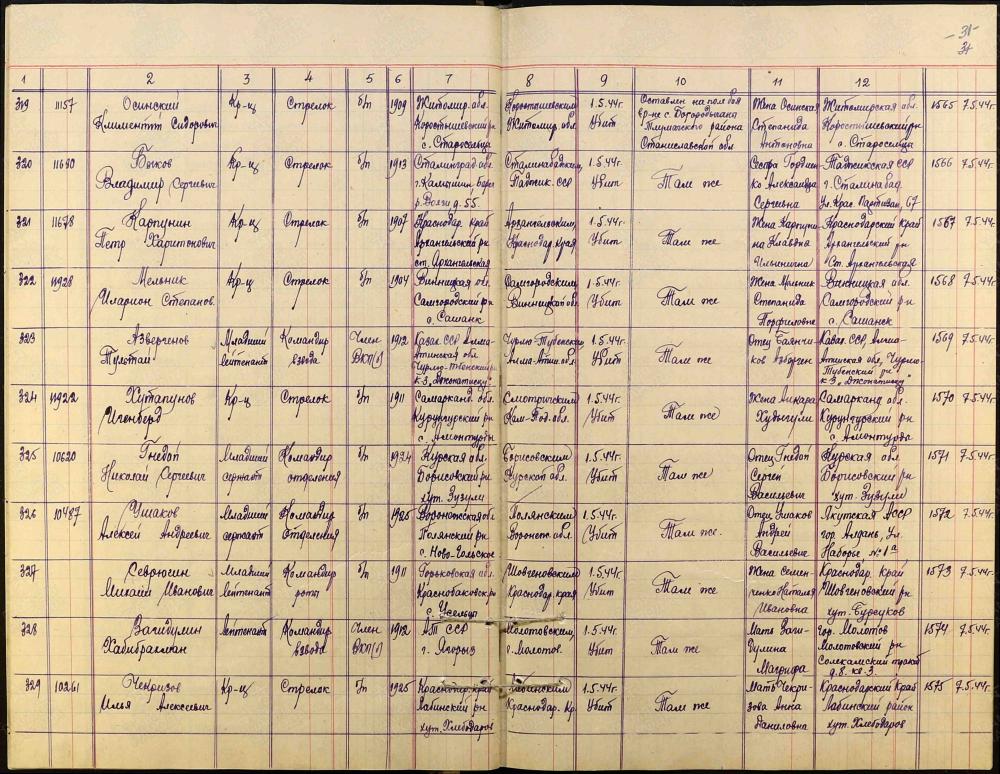 -31-
31
1 2 3 4 5 6 7 8 9 10 11 12
319 11157 Осинский Кр-ц Стрелок б/п 1909 Житомир. обл. Коростышевским 1.5.44г. Оставлен на поле боя Жена Осинская Житомирская обл. 1565 7.5.44г.
Климентий Сидорович Коростышевский рн Житомир. обл. Убит Степанида Коростышевский рн
с. Старосельце Тлумачского района Антоновна с. Старосельце
Станиславской обл
320 11690 Бычков Кр-ц Стрелок б/п 1913 Сталинград. обл. Сталинабадским 1.5.44г. Сестра Таджикская ССР 1566 7.5.44г.
Владимир Сергеевич Таджик. ССР Убит Там же Александра г. Сталинабад
р. Волги д. 55. Сергеевна Ул. Крас. Партизан, 67
321 11678 Карпунин Кр-ц Стрелок б/п 1907 Краснодар. Край Архангельским, 1.5.44г. Жена Карпуни- Краснодарский Край 1567 7.5.44г.
Петр Харитонович Архангельский рн Краснодар. края Убит Там же на Клавдия Архангельский рн
ст. Архангельская Ильинична Ст. Архангельская
322 11928 Мельник Кр-ц Стрелок б/п 1904 Винницкая обл. Самгородским, 1.5.44г. Жена Мельник Винницкая обл. 1568 7.5.44г.
Иларион Степанов. Самгородский рн Винницкой обл. Убит Там же Степанида Самгородский рн
с. Сошанск Порфиловна с. Сошанск
323 Азбергенов Младший Командир Член 1912 Казах. ССР Алма- 1.5.44г. Отец Казах. ССР, Алма- 1569 7.5.44г.
лейтенант взвода ВКП(б) Атинская обл. Алма-Атин. обл. Убит Там же Атинская обл,
324 11922 Кр-ц Стрелок б/п 1911 Самарканд. обл. Смотричским 1.5.44г. Жена Самарканд. обл. 1570 7.5.44г.
Кам-Под. обл. Убит Там же
325 10620 Гнедой Младший Командир б/п Курская обл. Борисовским 1.5.44г. Отец Гнедой Курская обл. 1571 7.5.44г.
Николай Сергеевич сержант отделения Борисовский рн Курской обл. Убит Там же Сергей Борисовский рн
хут. Зузули Васильевич хут. Зузули
326 10487 Ушаков Младший Командир б/п 1925 Воронежская обл Полянским 1.5.44г. Отец Ушаков Якутская АССР 1572 7.5.44г.
Алексей Андреевич сержант Отделения Полянский рн Воронеж. обл. Убит Там же. Андрей гор. Алдань, Ул.
с. Ново-Гольское Васильевич
327 Младший Командир б/п 1911 Горьковская обл Шовгеновским 1.5.44г. Жена Семен- Краснодар. край 1573 7.5.44г.
Михаил Иванович лейтенант роты Краснобаковск рн Краснодар. края Убит Там же ченко Наталья Шовгеновский рн
Ивановна
328 Вагидулин лейтенант Командир Член 1912 АТ ССР Молотовским, 1.5.44г. Мать Ваги- гор. Молотов 1574 7.5.44г.
Хабибрахман взвода ВКП(б) г. Молотов. Убит Там же дулина Молотовский рн
Магрифа Соликамский тракт
д. 8. кв. 3
329 10261 Чекризов Кр-ц Стрелок б/п 1925 Краснодар. край Лабинским 1.5.44г. Мать Чекри- Краснодарский Край 1575 7.5.44г.
Илья Алексеевич Лабинский рн Краснодар. Кр Убит Там же зова Анна Лабинский район
хут. Хлебодаров Даниловна хут. Хлебодаров